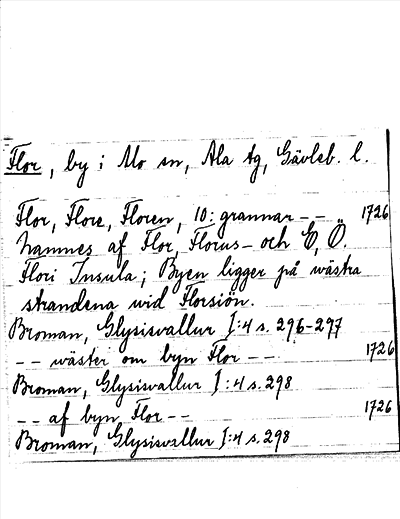 Flor, by i Mo sn, Ala tg, Gävleb. l.
Flor, Flore, Floren, 10: grannar -- 1726
namnes af Flor, Florus- och Ö, Ö.
Flori Insula; Byen ligger på wästra
strandena wid Florsiön.
Broman, Glysisvallur I:4 s. 296-297
-- wäster om byn Flor -- 1726
Broman, Glysisvallur I:4 s. 298
-- af byn Flor -- 1726
Broman, Glysisvallur I:4 s. 298